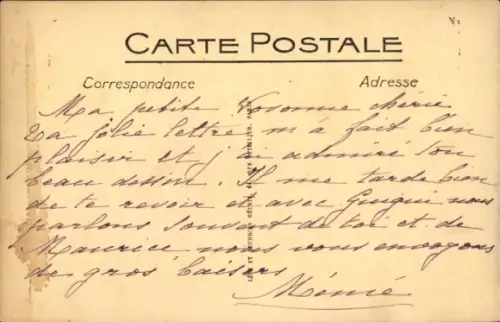 CARTE POSTALE
Correspondance
Adresse
Ma petite Vovonne chérie
Ta jolie lettre m'a fait bien
plaisir et j'ai admiré ton
beau dessin. Il me tarde bien
de te revoir et avec nous
parlons souvent de toi et de
Maurice nous vous envoyons
de gros baisers
Mémé